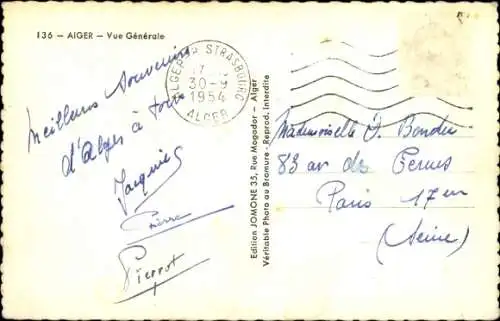 136 — ALGER — Vue Générale
ALGER R. STRASBOURG
17
30-9
1954
ALGER
Meilleurs Souvenirs
d'Alger à tous
Jacquie
Pierre
Pierrot
Edition JOMONE 35, Rue Mogador - Alger
Véritable Photo au Bromure - Reprod. Interdite
Mademoiselle J.
83 av des Ternes
Paris 17em
(Seine)